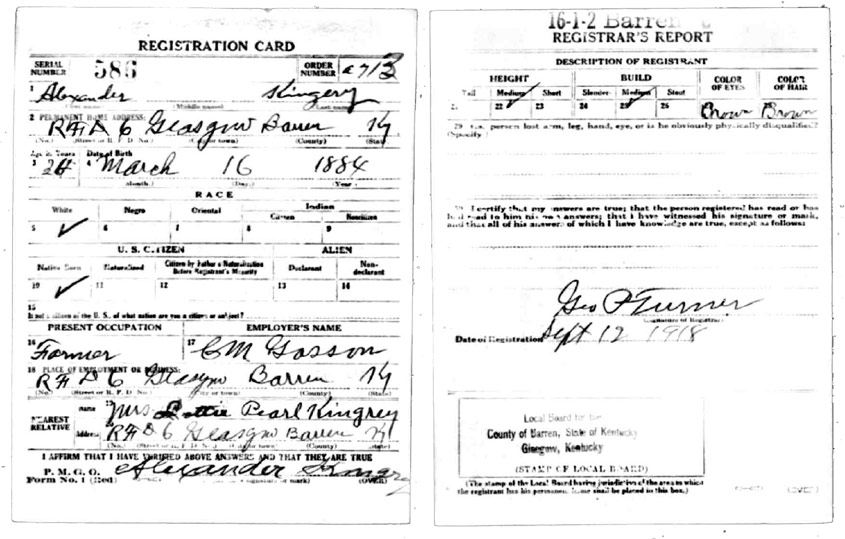 REGISTRATION CARD
SERIAL NUMBER 586 ORDER NUMBER a 713
1 Alexander Kingery
(First name) (Middle name) (Last name)
2 PERMANENT HOME ADDRESS:
RF D 6 Glasgow Barren Ky
(No.) (Street or R. F. D. No.) (City or town) (County) (State)
Age in Years Date of Birth
3 34 4 March 16 1884
(Month.) (Day.) (Year.)
RACE
White Negro Oriental Indian
Citizen Noncitizen
5 ✓ 6 7 8 9
U. S. CITIZEN ALIEN
Native Born Naturalized Citizen by Father's Naturalization Before Registrant's Majority Declarant Non-declarant
10 ✓ 11 12 13 14
15
If not a citizen of the U. S. of what nation are you a citizen or subject?
PRESENT OCCUPATION EMPLOYER'S NAME
16 Farmer 17 C M Gasson
18 PLACE OF EMPLOYMENT OR BUSINESS:
RF D 6 Glasgow Barren Ky
(No.) (Street or R. F. D. No.) (City or town) (County) (State)
NEAREST RELATIVE
Name Mrs Lottie Pearl Kingrey
Address RF D 6 Glasgow Barren Ky
(No.) (Street or R. F. D. No.) (City or town) (County) (State)
I AFFIRM THAT I HAVE VERIFIED ABOVE ANSWERS AND THAT THEY ARE TRUE
P. M. G. O.
Form No. 1 (Red) Alexander Kingrey
(Registrant's signature or mark) (OVER)
16-1-2 Barren
REGISTRAR'S REPORT
DESCRIPTION OF REGISTRANT
HEIGHT BUILD COLOR OF EYES COLOR OF HAIR
Tall Medium Short Slender Medium Stout
21 22 ✓ 23 24 25 ✓ 26 Brown Brown
29 Has person lost arm, leg, hand, eye, or is he obviously physically disqualified?
(Specify.)
30 I certify that my answers are true; that the person registered has read or has
had read to him his own answers; that I have witnessed his signature or mark,
and that all of his answers of which I have knowledge are true, except as follows:
Geo P Turner
(Signature of Registrar)
Date of Registration Sept 12 1918
Local Board for the
County of Barren, State of Kentucky
Glasgow, Kentucky
(STAMP OF LOCAL BOARD)
(The stamp of the Local Board having jurisdiction of the area in which
the registrant has his permanent home shall be placed in this box.)
(OVER)